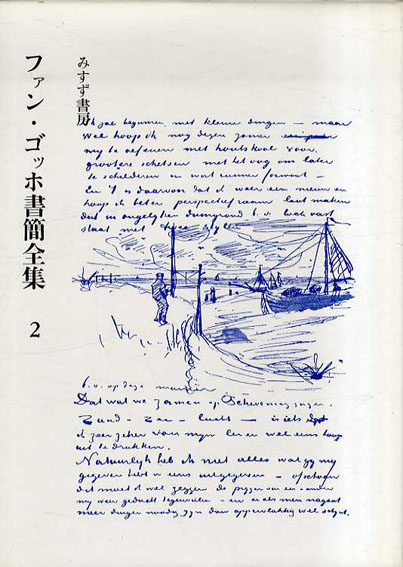 みすず書房
ファン・ゴッホ書簡全集 2
zal beginnen met kleine dingen – maar
wel hoop ik nog dezen zomer
my te oefenen met houtskool voor
grootere schetsen met het oog om later
te schilderen in wat ruimer formaat –
En 't is daarvoor dat ik weer een nieuw en
hoop ik beter perspectiefraam laat maken
dat in ongelyken duingrond b.v. vast
staat met
b.v. op deze manier
Dat wat we zamen op Scheveningen zagen.
Zand – Zee – Lucht – is iets dat
ik zeer zeker van myn leven wel eens hoop
uit te drukken.
Natuurlyk heb ik niet alles wat gy my
gegeven hebt in eens uitgegeven – ofschoon
dit moet ik wel zeggen de pryzen van een & ander
my weer geducht tegenvielen – en er als men nagaat
meer dingen noodig zyn dan oppervlakkig wel schynt.